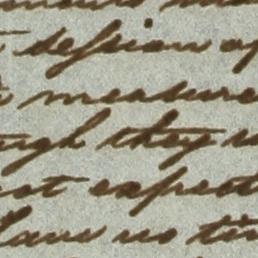 session of
measure
ugh they
not expect
have no tim